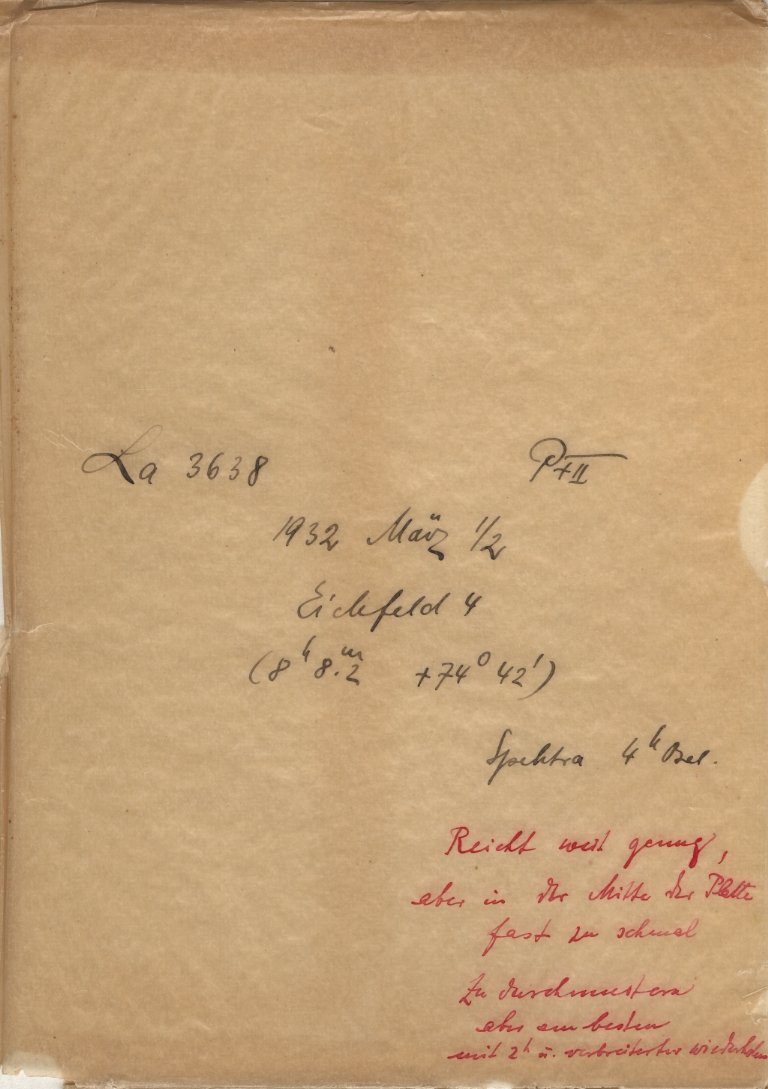 La 3638 P+II
1932 März 1/2
Eichfeld 4
(8ʰ 8.ᵐ2 +74° 42')
Spektra 4ʰ Bel.
Reicht weit genug,
aber in der Mitte der Platte
fast zu schmal
Zu durchmustern
aber am besten
mit 2ʰ u. verbreiterter wiederholen